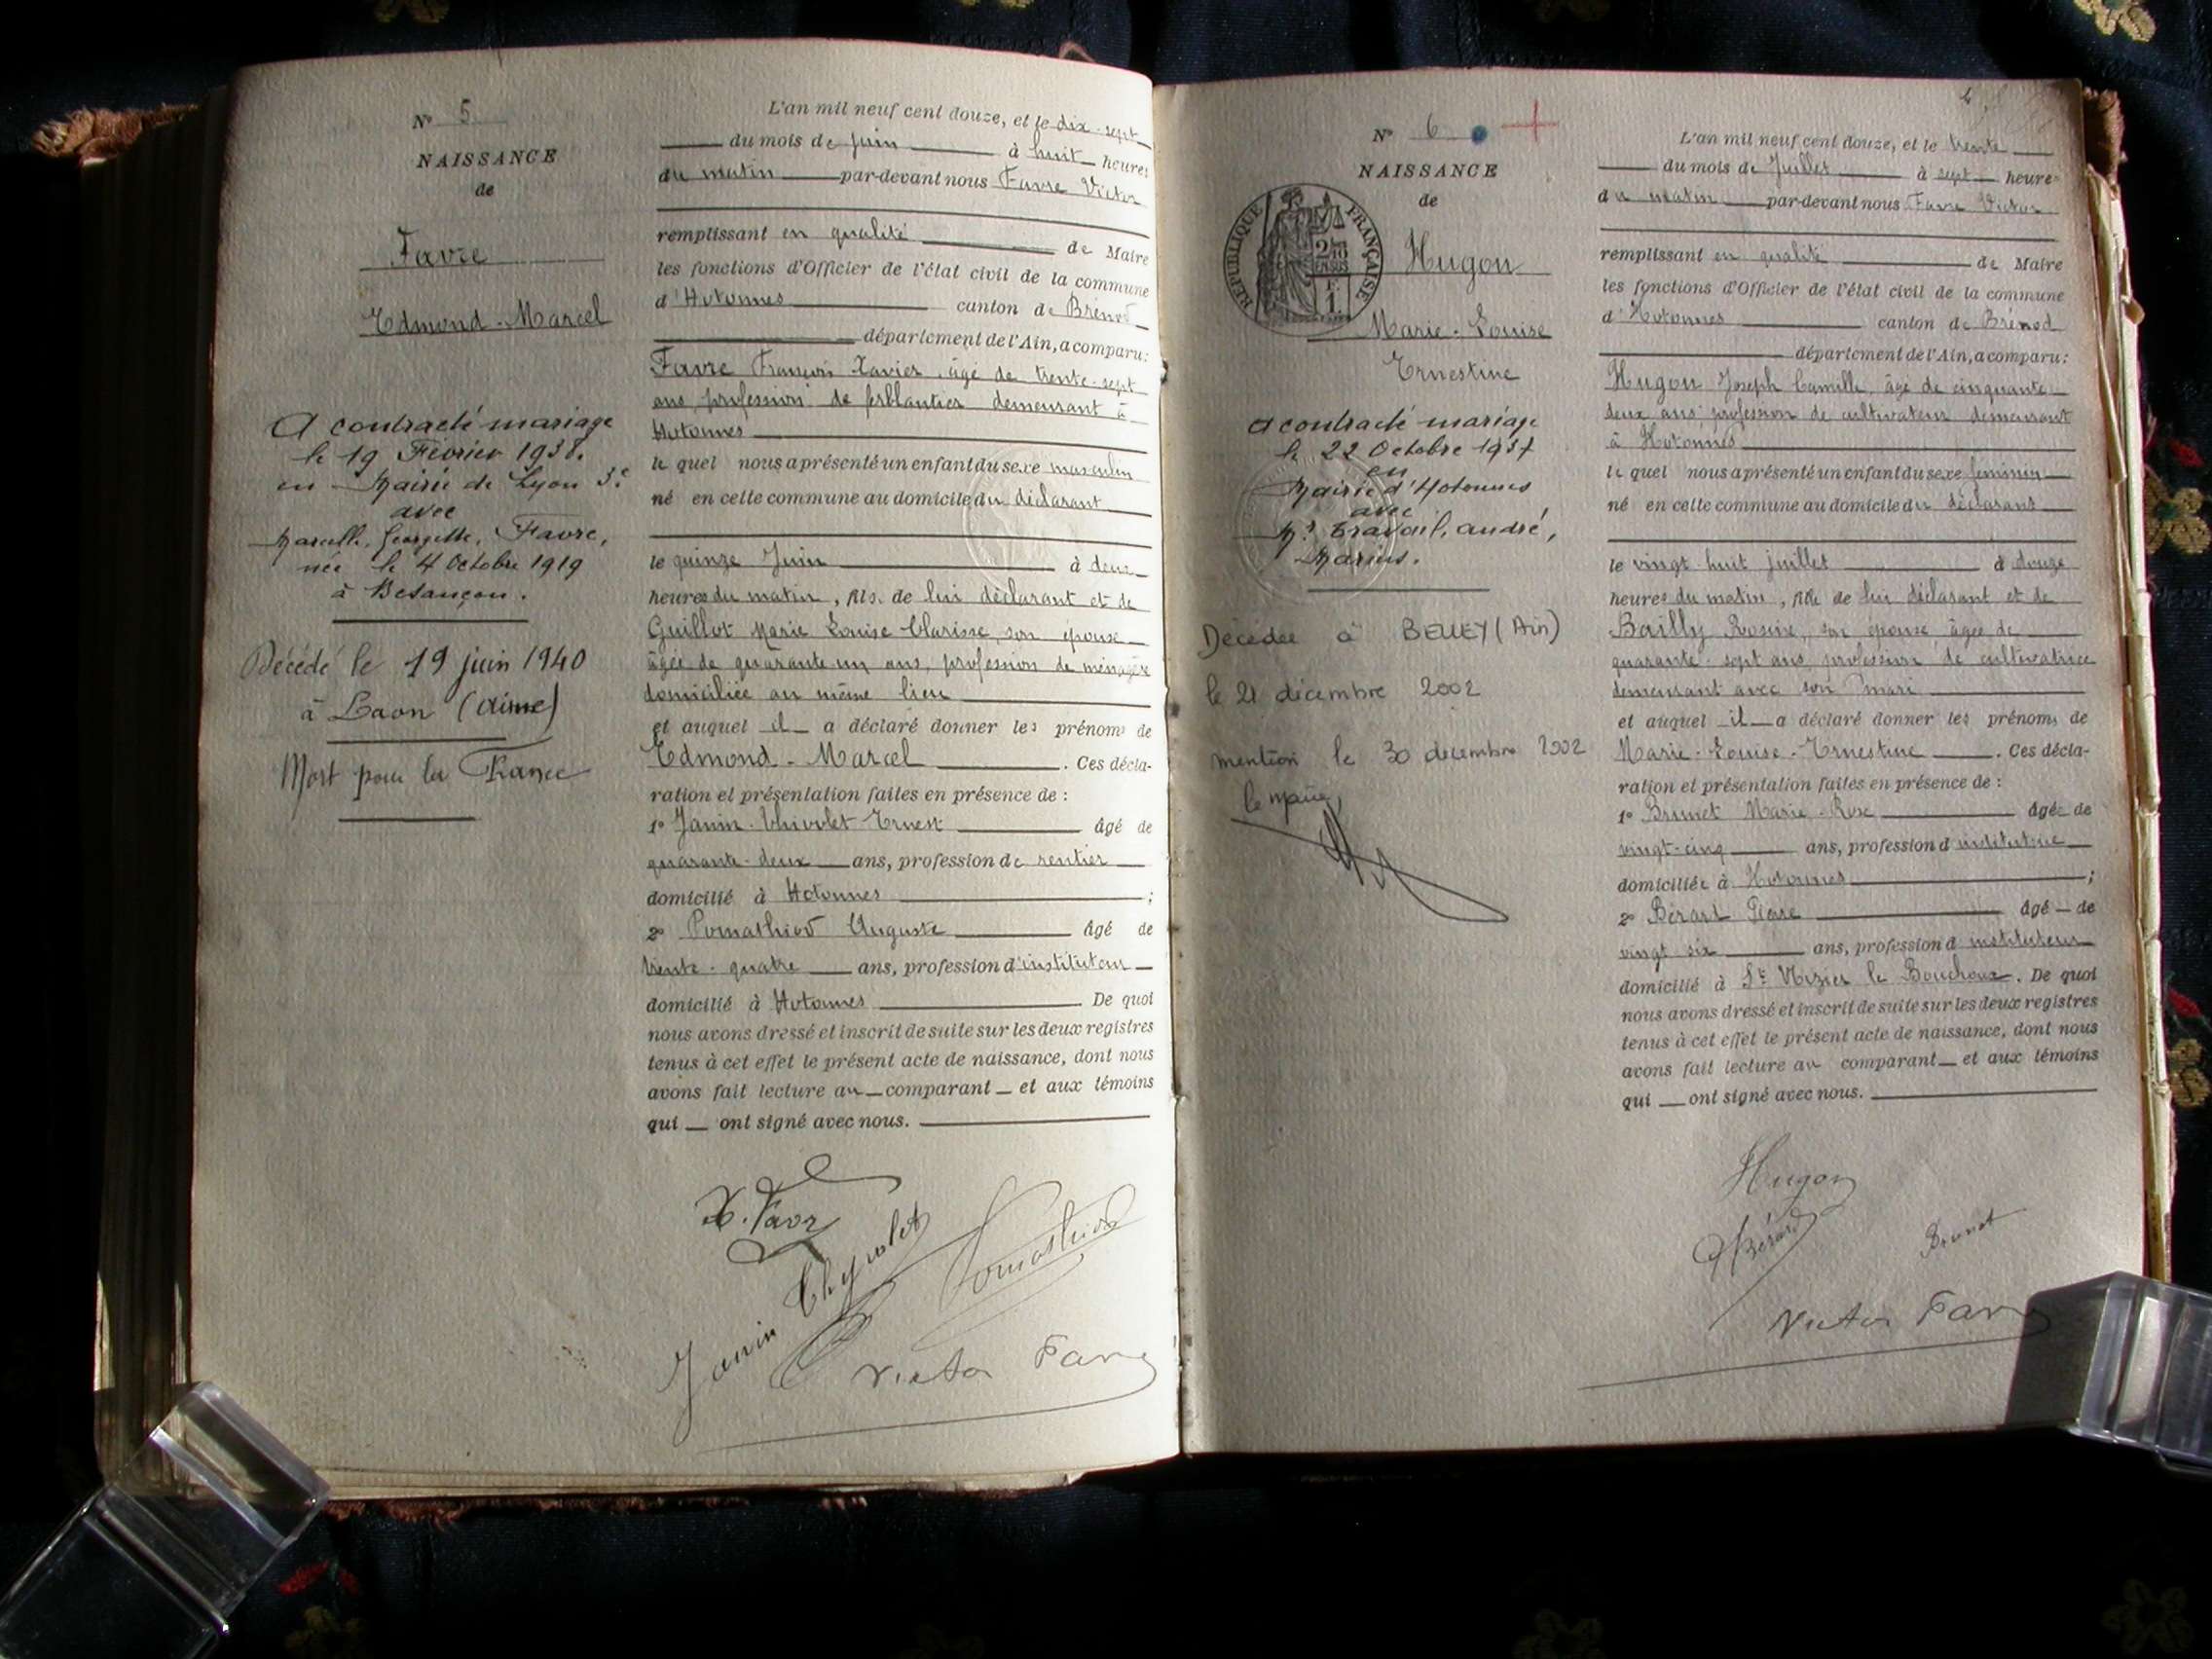 N° 5
NAISSANCE
de
Favre
Edmond-Marcel
A contracté mariage
le 19 Février 1938.
en Mairie de Lyon 3e
avec
Marcelle, Georgette, Favre,
née le 4 Octobre 1919
à Besançon.
Décédé le 19 juin 1940
à Laon (Aisne)
Mort pour la France
L'an mil neuf cent douze, et le dix-sept
du mois de juin à huit heures
du matin par-devant nous Favre Victor
remplissant en qualité de Maire
les fonctions d'Officier de l'état civil de la commune
d'Hotonnes canton de Brénod
département de l'Ain, a comparu:
Favre François Xavier, âgé de trente-sept
ans, profession de ferblantier demeurant à
Hotonnes
le quel nous a présenté un enfant du sexe masculin
né en cette commune au domicile du déclarant
le quinze Juin à deux
heures du matin, fils de lui déclarant et de
Guillot Marie Louise Clarisse, son épouse
âgée de quarante un ans, profession de ménagère
domiciliée au même lieu
et auquel il a déclaré donner les prénoms de
Edmond-Marcel. Ces décla-
ration et présentation faites en présence de :
1° Janin-Thivolet Ernest âgé de
quarante-deux ans, profession de rentier
domicilié à Hotonnes ;
2° Pomathiod Auguste âgé de
trente-quatre ans, profession d'instituteur
domicilié à Hotonnes De quoi
nous avons dressé et inscrit de suite sur les deux registres
tenus à cet effet le présent acte de naissance, dont nous
avons fait lecture au comparant et aux témoins
qui ont signé avec nous.
X. Favre
Janin Thyvolet
Pomathiod
Victor Favre
N° 6
NAISSANCE
de
RÉPUBLIQUE FRANÇAISE
Hugon
Marie-Louise
Ernestine
A contracté mariage
le 22 Octobre 1937
en
Mairie d'Hotonnes
avec
Mr. Travail, André,
Marius.
Décédée à BELLEY (Ain)
le 21 décembre 2002
mention le 30 décembre 2002
le maire,
4
L'an mil neuf cent douze, et le trente
du mois de Juillet à sept heures
du matin par-devant nous Favre Victor
remplissant en qualité de Maire
les fonctions d'Officier de l'état civil de la commune
d'Hotonnes canton de Brénod
département de l'Ain, a comparu:
Hugon Joseph Camille âgé de cinquante-
deux ans profession de cultivateur demeurant
à Hotonnes
le quel nous a présenté un enfant du sexe féminin
né en cette commune au domicile du déclarant
le vingt-huit juillet à douze
heures du matin, fille de lui déclarant et de
Bailly Rosine, son épouse âgée de
quarante-sept ans, profession de cultivatrice
demeurant avec son mari
et auquel il a déclaré donner les prénoms de
Marie-Louise-Ernestine. Ces décla-
ration et présentation faites en présence de :
1° Brunet Marie-Rose âgée de
vingt-cinq ans, profession d'institutrice
domiciliée à Hotonnes ;
2° Bérard Pierre âgé de
vingt six ans, profession d'instituteur
domicilié à St Nizier le Bouchoux. De quoi
nous avons dressé et inscrit de suite sur les deux registres
tenus à cet effet le présent acte de naissance, dont nous
avons fait lecture au comparant et aux témoins
qui ont signé avec nous.
Hugon
Bérard
Brunet
Victor Favre